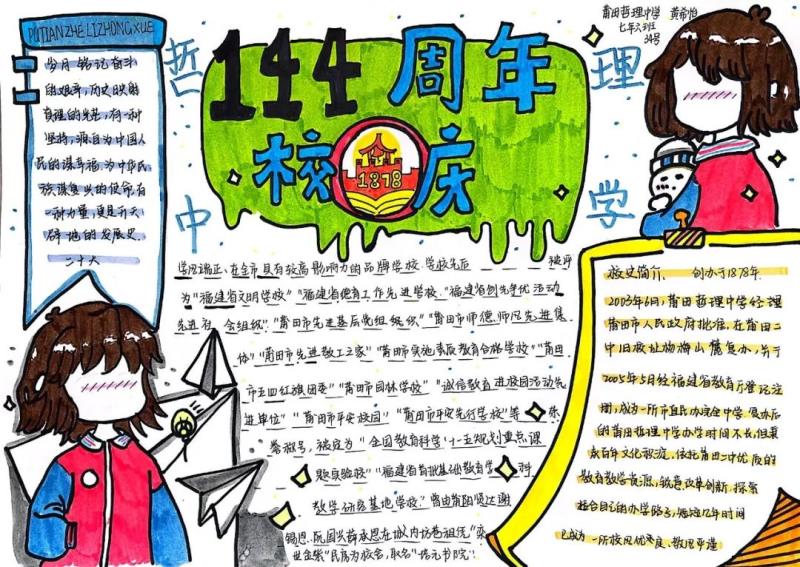 PUTIANZHELIZHONGXUE
岁月铭记奋斗
的艰辛，历史映射
真理的光芒，有一种
坚持，源自为中国人
民的谋幸福，为中华民
族谋复兴的使命有
一种力量，更是开天
辟地的发展史
二十大
144周年
校庆
1878
哲
中
理
学
莆田哲理中学 黄希怡
七年六班
34号
学风端正、在全市具有较高影响力的品牌学校。学校先后 被评
为"福建省文明学校""福建省德育工作先进学校""福建省创先争优活动
先进 合组织""莆田市先进基层党组织""莆田市师德师风先进集
体""莆田市先进教工之家""莆田市实施素质教育合格学校""莆田
市五四红旗团委""莆田市园林学校""诚信教育进校园活动先
进单位""莆田市平安校园""莆田市平安先行学校"等
荣誉称号，被设为"全国教育科学十一五规划重点课
题实验校""福建省 基础教育学 科
教学研究基地学校"曾由莆阳贤江谢
锡恩、阮国 薛承恩在城内坊巷租凭
世金紫"民房为校舍，取名"培元书院"！
校史简介、 创办于1878年
2003年6月，莆田哲理中学经
莆田市人民政府批准，在莆田二
中旧校址梅山麓复办，并于
2005年5月经福建省教育厅登记注
册，成为一所市直民办完全中学。复办后
的莆田哲理中学办学时间不长，但秉
承百年文化积淀，依托莆田二中优质的
教育教学资源，锐意改革创新，探索
适合自己的办学路子，短短几年时间
已成为一所校风优良、教风严谨